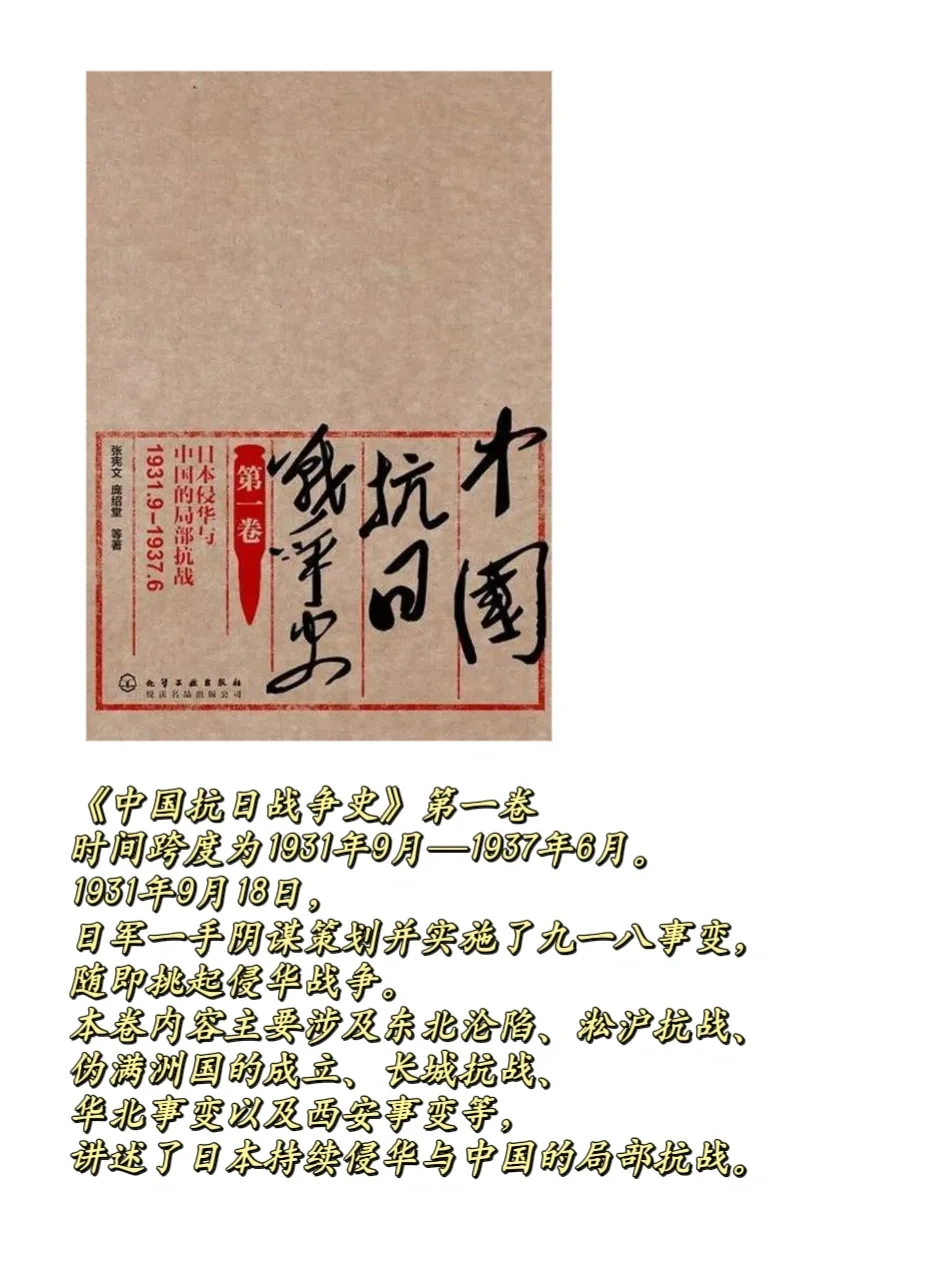 中國
抗日
戰爭史
第一卷
日本侵华与
中国的局部抗战
1931.9-1937.6
张宪文 庞绍堂 等著
化学工业出版社
悦读名品出版公司
《中国抗日战争史》第一卷
时间跨度为1931年9月—1937年6月。
1931年9月18日，
日军一手阴谋策划并实施了九一八事变，
随即挑起侵华战争。
本卷内容主要涉及东北沦陷、淞沪抗战、
伪满洲国的成立、长城抗战、
华北事变以及西安事变等，
讲述了日本持续侵华与中国的局部抗战。